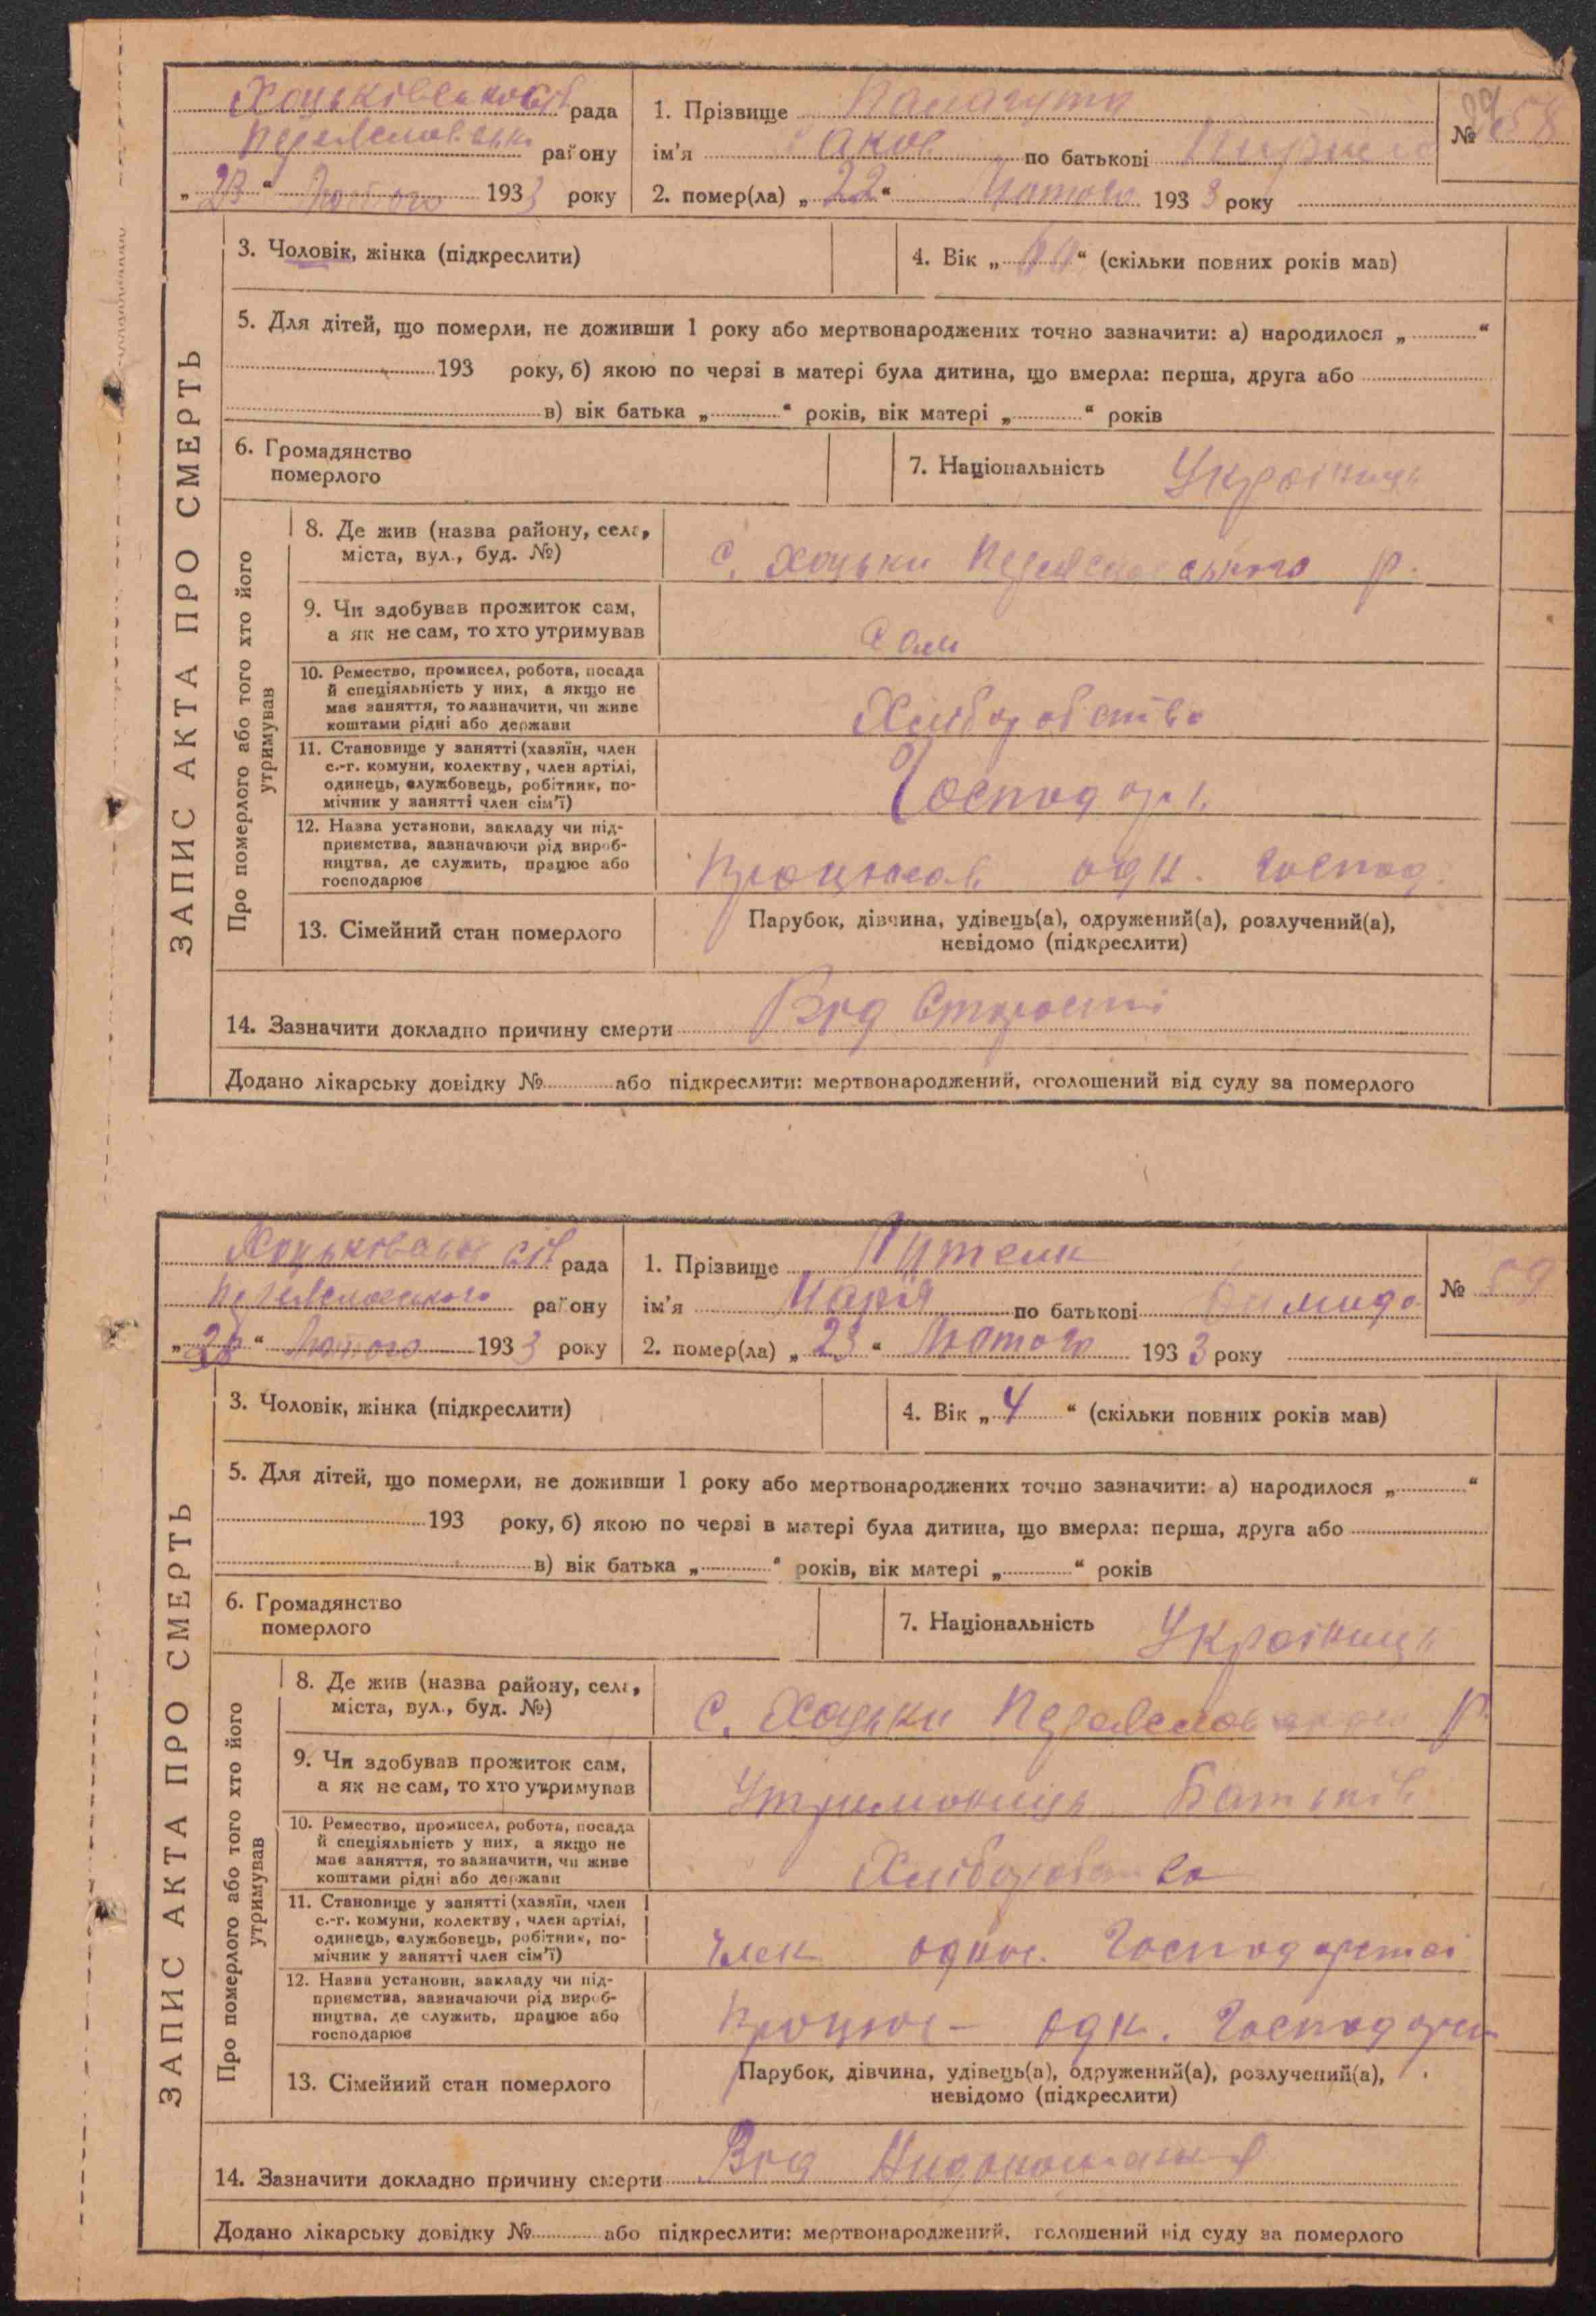 Хоцьківська сіл рада
Переяславськ району
„23“ Лютого 1933 року
1. Прізвище Паламута
ім’я Яков по батькові
№ 58
2. помер(ла) „22“ Лютого 1933 року
ЗАПИС АКТА ПРО СМЕРТЬ
3. Чоловік, жінка (підкреслити)
4. Вік „“ (скільки повних років мав)
5. Для дітей, що померли, не доживши 1 року або мертвонароджених точно зазначити: а) народилося „“
193 року, б) якою по черзі в матері була дитина, що вмерла: перша, друга або
в) вік батька „“ років, вік матері „“ років
6. Громадянство
померлого
7. Національність Українець
Про померлого або того хто його
утримував
8. Де жив (назва району, села,
міста, вул., буд. №)
с. Хоцьки Переяславського р.
9. Чи здобував прожиток сам,
а як не сам, то хто утримував
Сам
10. Ремество, промисел, робота, посада
й спеціяльність у них, а якщо не
має заняття, то зазначити, чи живе
коштами рідні або держави
Хліборобство
11. Становище у занятті (хазяїн, член
с.-г. комуни, колектву, член артілі,
одинець, службовець, робітник, по-
мічник у занятті член сім’ї)
Господарь
12. Назва установи, закладу чи під-
приємства, зазначаючи рід вироб-
ництва, де служить, працює або
господарює
Працював одн. господ.
13. Сімейний стан померлого
Парубок, дівчина, удівець(а), одружений(а), розлучений(а),
невідомо (підкреслити)
14. Зазначити докладно причину смерти Від Старости
Додано лікарську довідку № або підкреслити: мертвонароджений, оголошений від суду за померлого
Хоцьківська сіл рада
Переяславського району
„28“ Лютого 1933 року
1. Прізвище
ім’я Марія по батькові
№ 59
2. помер(ла) „23“ Лютого 1933 року
ЗАПИС АКТА ПРО СМЕРТЬ
3. Чоловік, жінка (підкреслити)
4. Вік „4“ (скільки повних років мав)
5. Для дітей, що померли, не доживши 1 року або мертвонароджених точно зазначити: а) народилося „“
193 року, б) якою по черзі в матері була дитина, що вмерла: перша, друга або
в) вік батька „“ років, вік матері „“ років
6. Громадянство
померлого
7. Національність Українець
Про померлого або того хто його
утримував
8. Де жив (назва району, села,
міста, вул., буд. №)
с. Хоцьки Переяславського р.
9. Чи здобував прожиток сам,
а як не сам, то хто утримував
Утриманець Батьків
10. Ремество, промисел, робота, посада
й спеціяльність у них, а якщо не
має заняття, то зазначити, чи живе
коштами рідні або держави
Хліборобство
11. Становище у занятті (хазяїн, член
с.-г. комуни, колектву, член артілі,
одинець, службовець, робітник, по-
мічник у занятті член сім’ї)
член однос. Господарства
12. Назва установи, закладу чи під-
приємства, зазначаючи рід вироб-
ництва, де служить, працює або
господарює
Працює – одн. Господарст
13. Сімейний стан померлого
Парубок, дівчина, удівець(а), одружений(а), розлучений(а),
невідомо (підкреслити)
14. Зазначити докладно причину смерти Від
Додано лікарську довідку № або підкреслити: мертвонароджений, голошений від суду за померлого